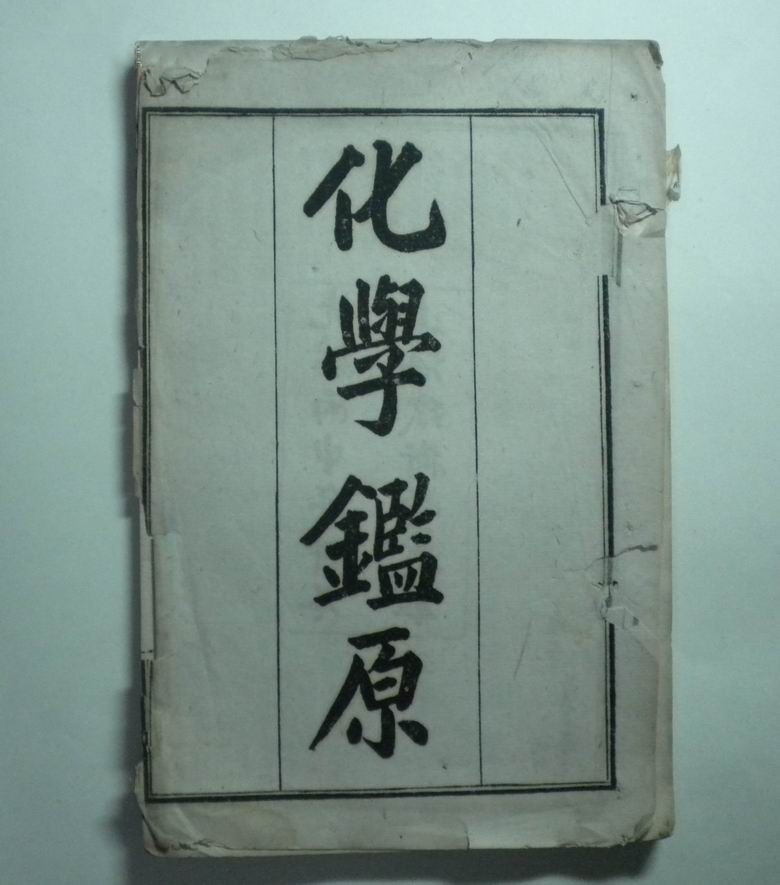 化學鑑原